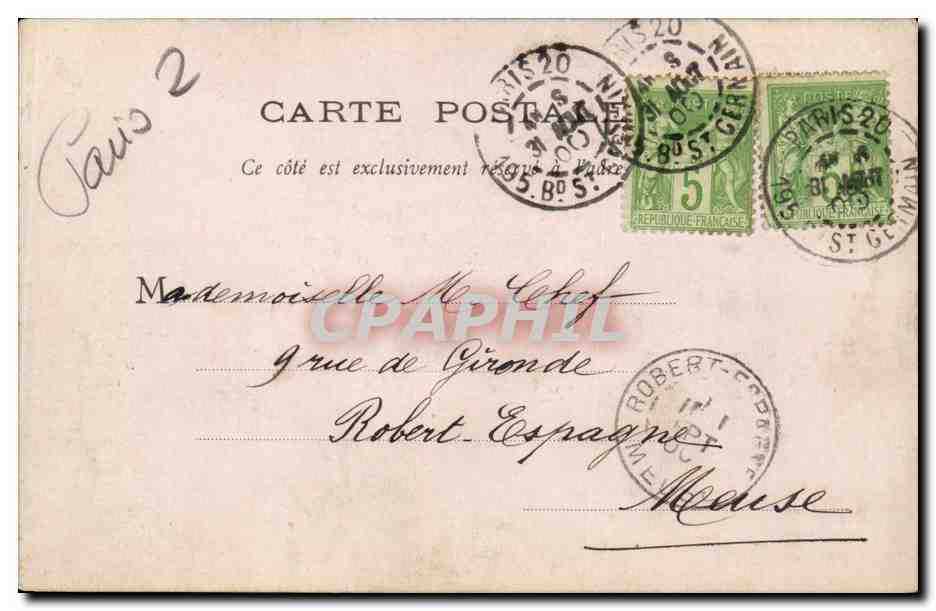 Paris 2
CARTE POSTALE
Ce côté est exclusivement réservé à l'adre
PARIS 20
31 AOUT
00
195. BD ST GERMAIN
PARIS 20
31 AOUT
00
195. BD ST GERMAIN
PARIS 20
31 AOUT
00
195 ST GERMAIN
POSTE
5
REPUBLIQUE FRANÇAISE
5
REPUBLIQUE FRANÇAISE
Mademoiselle M. Chef
CPAPHIL
9 rue de Gironde
Robert-Espagne
Meuse
ROBERT-ESPAGNE
1
SEPT
00
MEUSE